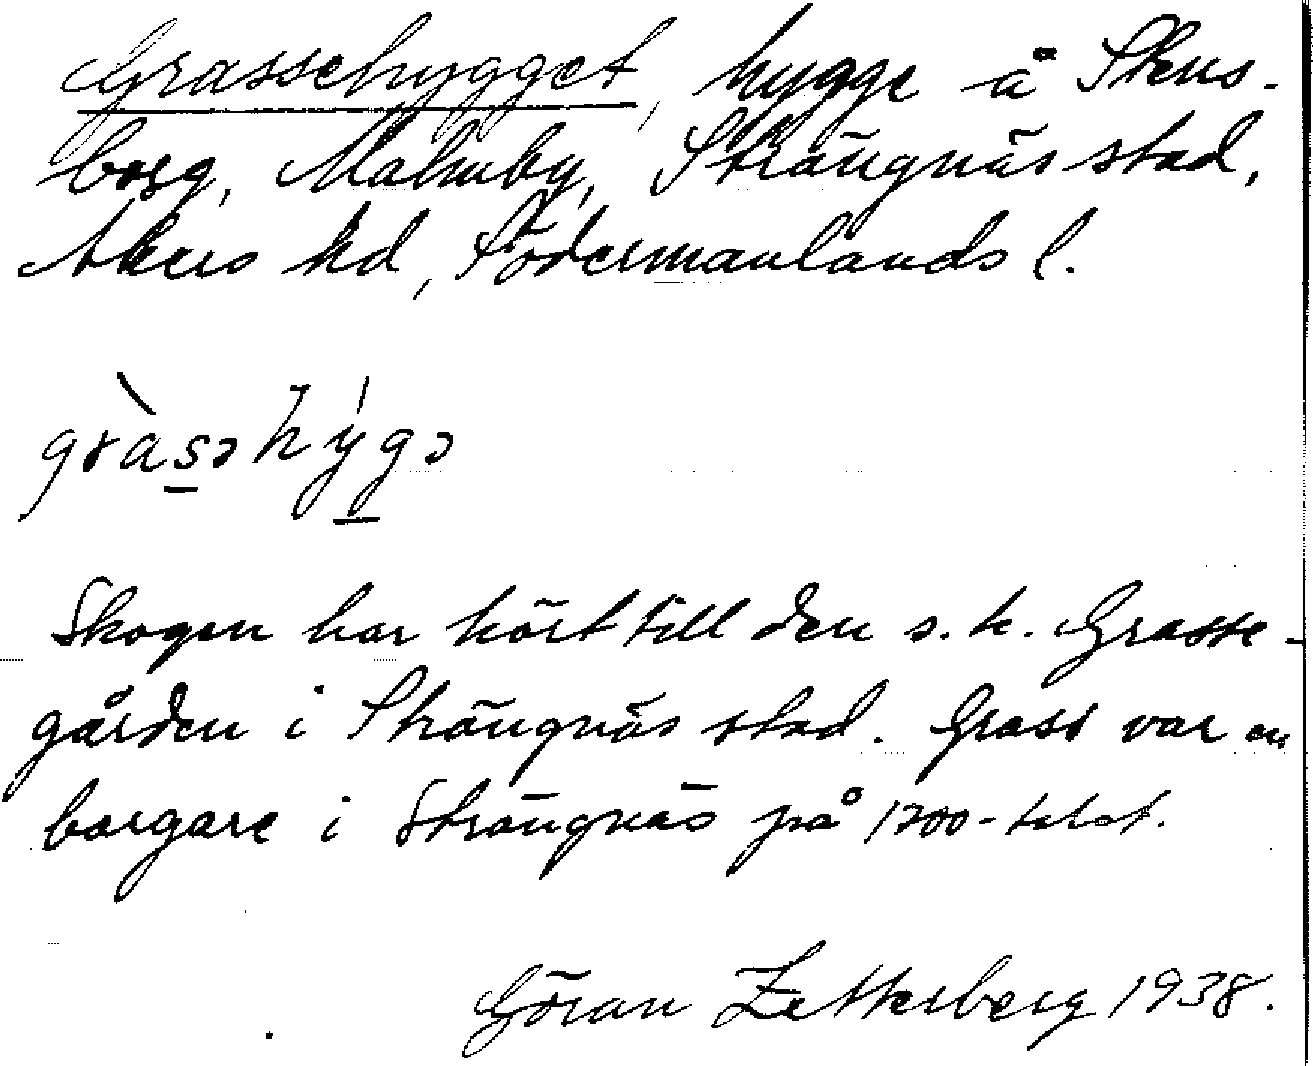 Grassehygget, hygge å Stens-
borg, Malmby, Strängnäs stad,
Åkers hd, Södermanlands l.
gràsəhýgə
Skogen har hört till den s.k. Grasse-
gården i Strängnäs stad. Grass var en
borgare i Strängnäs på 1700-talet.
Göran Zetterberg 1938.